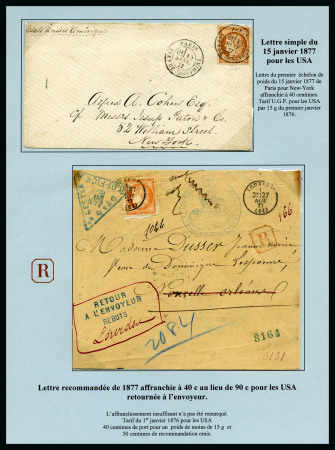 Lettre simple du
15 janvier 1877
pour les USA
Lettre du premier échelon de
poids du 15 janvier 1877 de
Paris pour New-York
affranchie à 40 centimes.
Tarif U.G.P. pour les USA
par 15 g du premier janvier
1876.
PARIS
Alfred A. Cohen Esq.
of Messrs. Jesup Paton & Co.
52 William Street.
New York.
1066
166
R
Madame Dusser
Veuve de Dominique Lesponne
Nouvelle Orléans
R
RETOUR
A L'ENVOYEUR
REBUTS
Lourdes
2084
3164
3131
Lettre recommandée de 1877 affranchie à 40 c au lieu de 90 c pour les USA
retournée à l'envoyeur.
L'affranchissement insuffisant n'a pas été remarqué.
Tarif du 1er janvier 1876 pour les USA
40 centimes de port pour un poids de moins de 15 g et
50 centimes de recommandation omis.